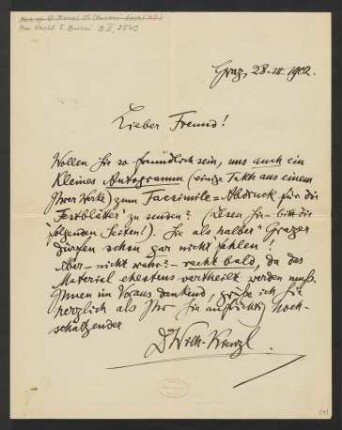 Mus. Nachl. F. Busoni B II, 2540
Graz, 28. III. 1902.
Lieber Freund!
Wollen Sie so freundlich sein, uns auch ein
kleines Autogramm (einige Takte aus einem
Ihrer Werke) zum Facsimile-Abdruck für die
"Festblätter" zu senden? (Lesen Sie bitte die
folgenden Seiten!). Sie als "halber" Grazer
dürfen schon gar nicht fehlen!
Aber – nicht wahr? – recht bald, da das
Material ehestens vertheilt werden muß.
Ihnen im Voraus dankend, grüße ich Sie
herzlich als Ihr Sie aufrichtig hoch-
schätzender
Dr Wilh. Kienzl.